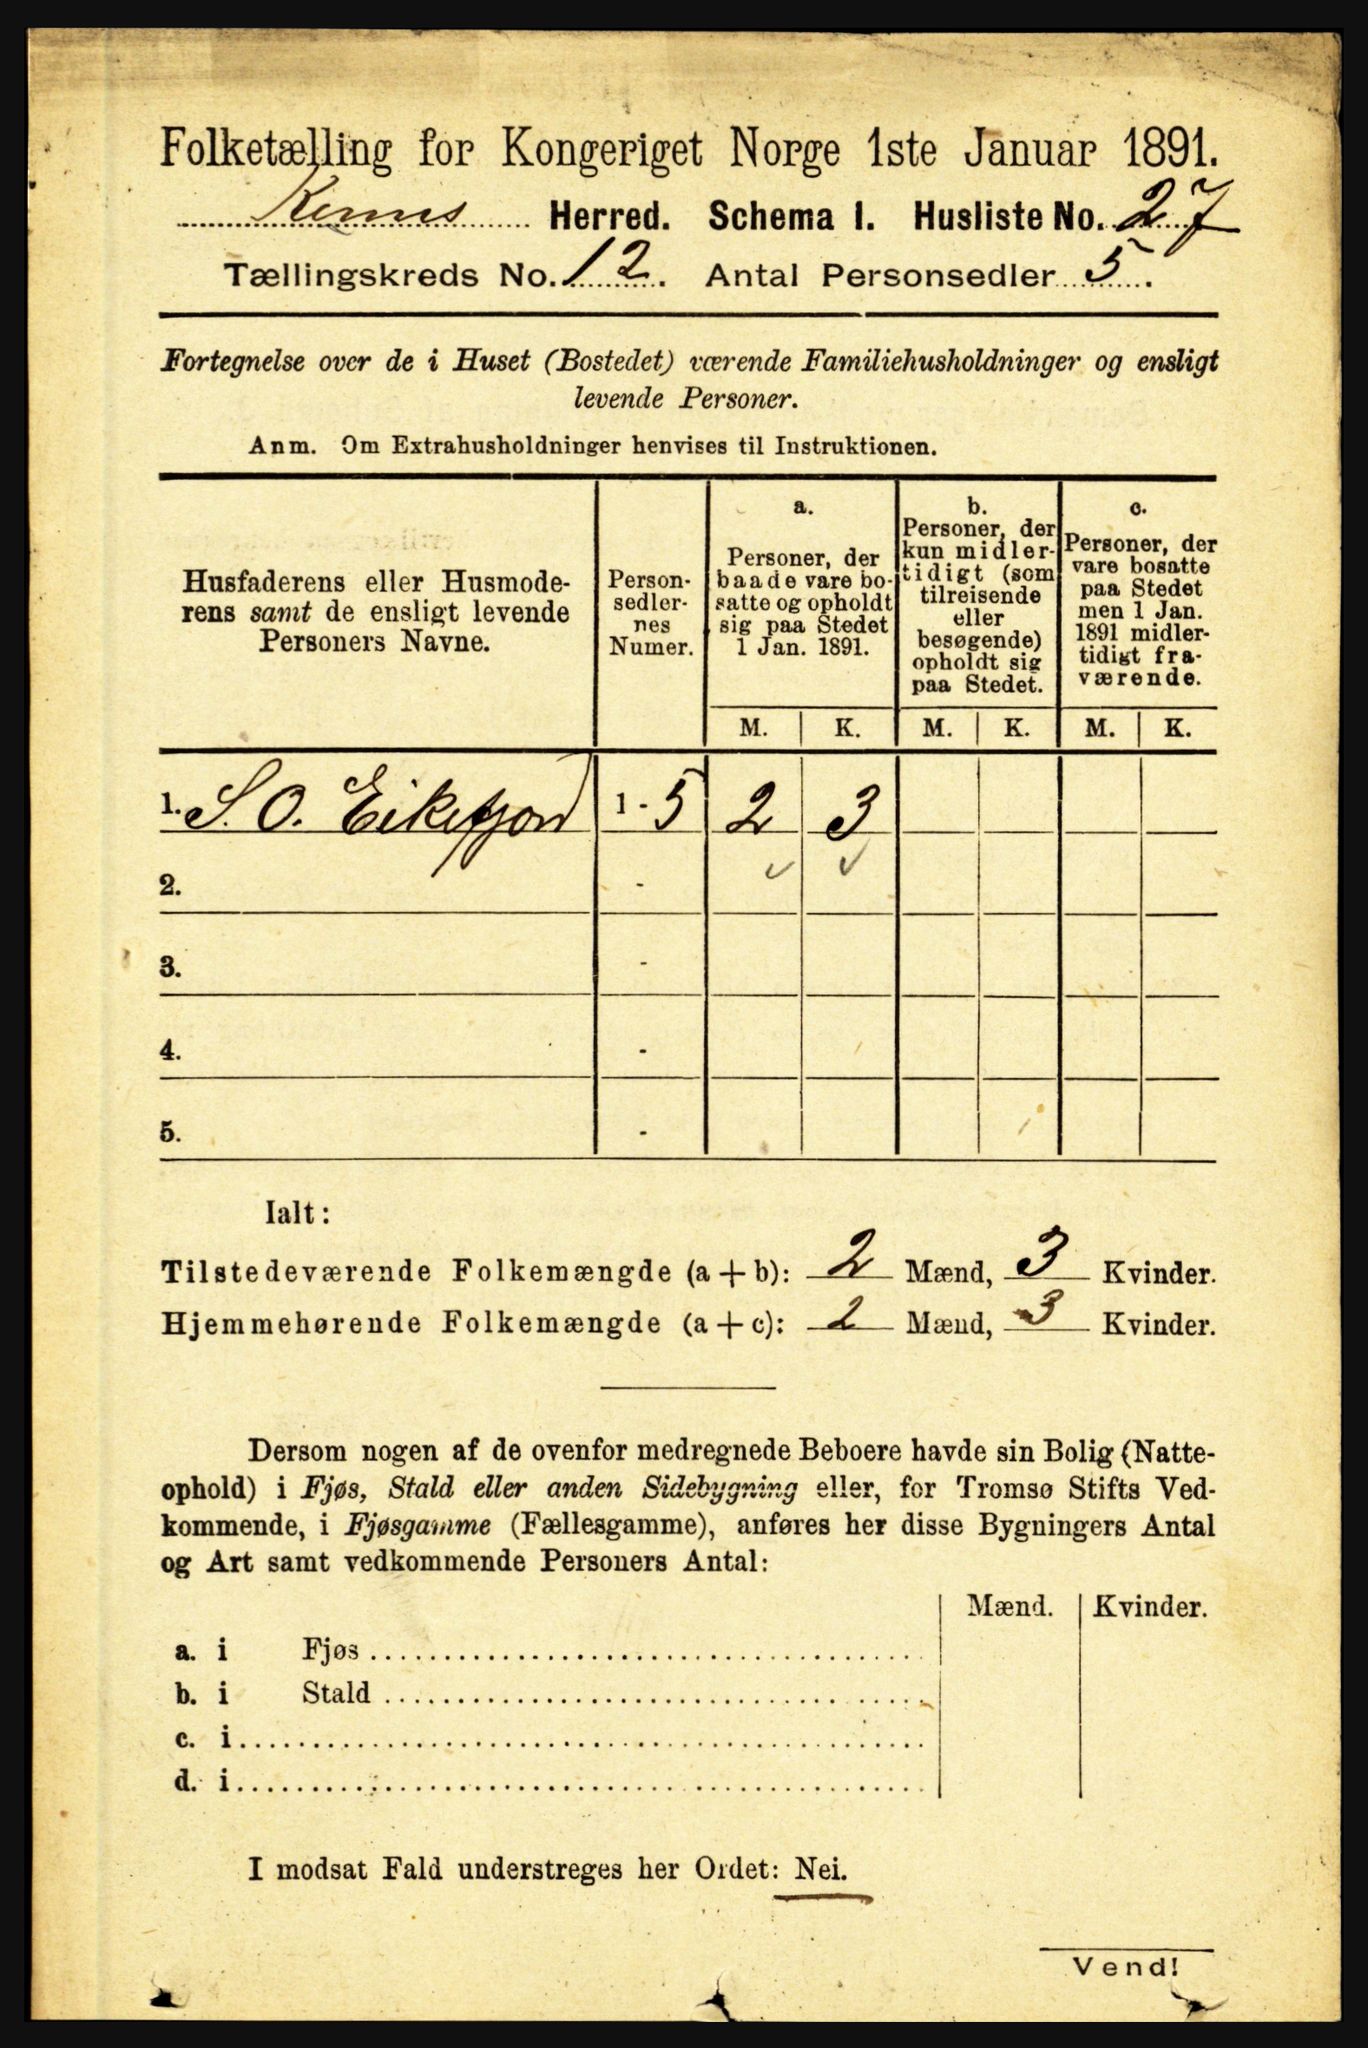 Folketælling for Kongeriget Norge 1ste Januar 1891.
Kinns Herred. Schema I. Husliste No. 27
Tællingskreds No. 12. Antal Personsedler 5.
Fortegnelse over de i Huset (Bostedet) værende Familiehusholdninger og ensligt
levende Personer.
Anm. Om Extrahusholdninger henvises til Instruktionen.
Husfaderens eller Husmode-
rens samt de ensligt levende
Personers Navne.
Person-
sedler-
nes
Numer.
a.
Personer, der
baade vare bo-
satte og opholdt
sig paa Stedet
1 Jan. 1891.
b.
Personer, der
kun midler-
tidigt (som
tilreisende
eller
besøgende)
opholdt sig
paa Stedet.
c.
Personer, der
vare bosatte
paa Stedet
men 1 Jan.
1891 midler-
tidigt fra-
værende.
M. K. M. K. M. K.
1. S. O. Eikefjord 1 - 5 2 3
2. -
3. -
4. -
5. -
Ialt:
Tilstedeværende Folkemængde (a + b): 2 Mænd, 3 Kvinder.
Hjemmehørende Folkemængde (a + c): 2 Mænd, 3 Kvinder.
Dersom nogen af de ovenfor medregnede Beboere havde sin Bolig (Natte-
ophold) i Fjøs, Stald eller anden Sidebygning eller, for Tromsø Stifts Ved-
kommende, i Fjøsgamme (Fællesgamme), anføres her disse Bygningers Antal
og Art samt vedkommende Personers Antal:
Mænd. Kvinder.
a. i Fjøs
b. i Stald
c. i
d. i
I modsat Fald understreges her Ordet: Nei.
Vend!